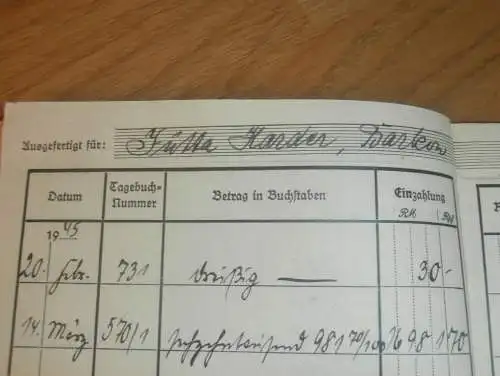 Ausgefertigt für: Jutta Harder, Barkow
Datum Tagebuch-Nummer Betrag in Buchstaben Einzahlung
RM Rpf
1945
20. Febr. 731 dreißig — 30.-
14. März 570/1 sechzehntausend 981 70/100 16 981 70